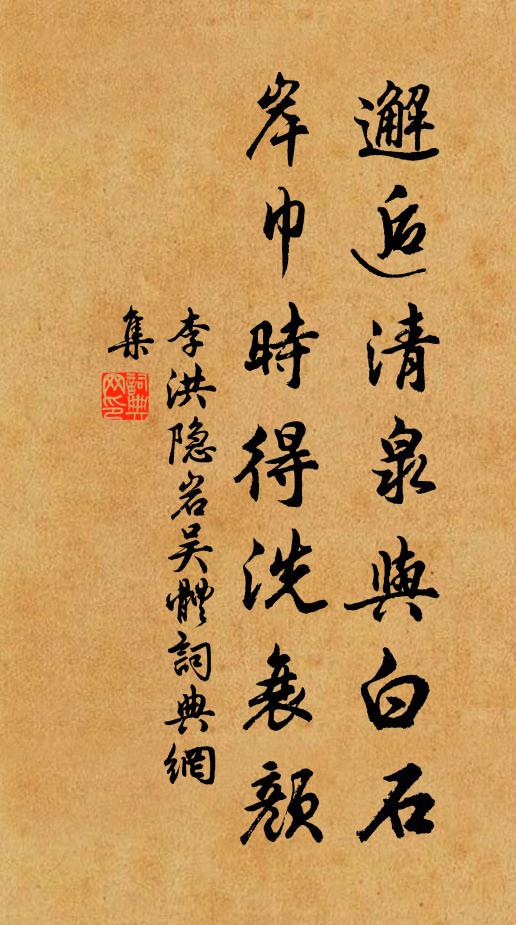 邂逅清泉與白石
岸巾時得洗衰顏
李洪隐岩吴體詞典網
集
詞典網印